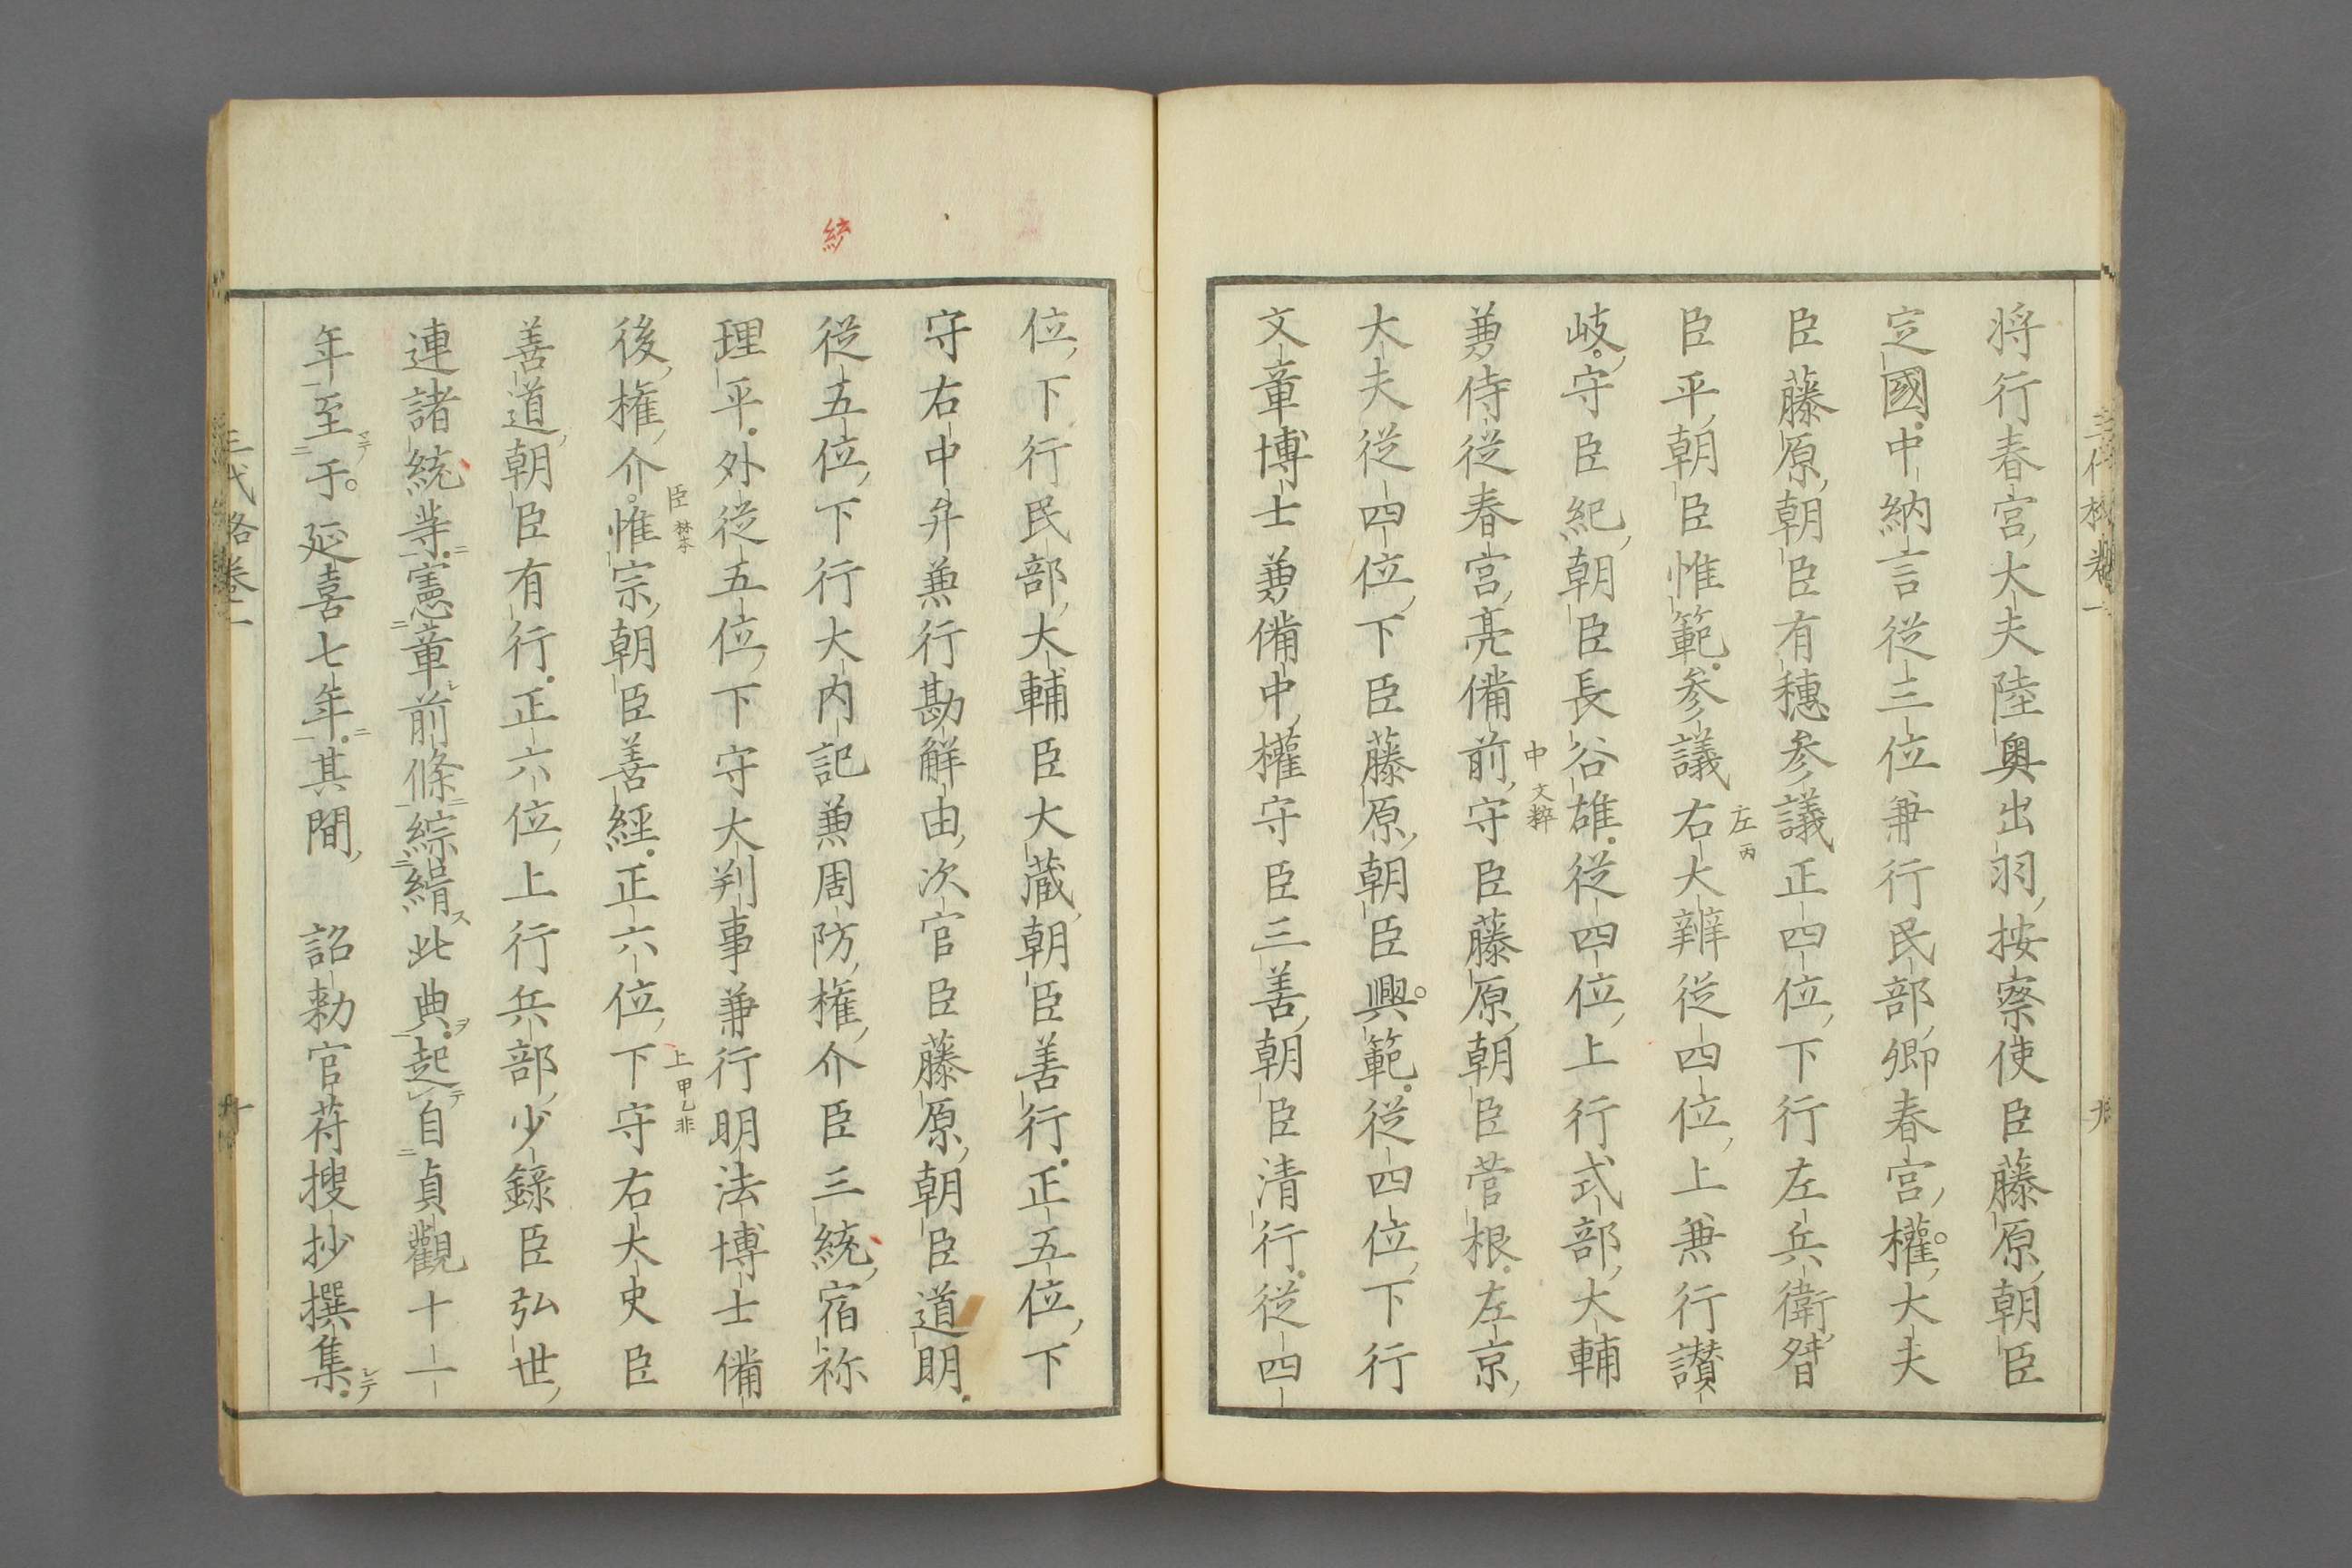 将行春宮大夫陸奥出羽按察使臣藤原朝臣
定國中納言従三位兼行民部卿春宮權大夫
臣藤原朝臣有穗参議正四位下行左兵衛督
臣平朝臣惟範参議右大辨従四位上兼行讃
左丙
岐守臣紀朝臣長谷雄従四位上行式部大輔
兼侍従春宮亮備前守臣藤原朝臣菅根左京
中文粹
大夫従四位下臣藤原朝臣興範従四位下行
文章博士兼備中權守臣三善朝臣清行従四
位下行民部大輔臣大蔵朝臣善行正五位下
守右中弁兼行勘解由次官臣藤原朝臣道明
従五位下行大内記兼周防権介臣三統宿祢
統
理平外従五位下守大判事兼行明法博士備
後権介惟宗朝臣善經正六位下守右大史臣
臣林本
上甲乙非
善道朝臣有行正六位上行兵部少録臣弘世
連諸統等憲章前條綜緝此典起自貞觀十一
年至于延喜七年其間詔勅官符搜抄撰集
三代格卷一
九
三代格卷一
十